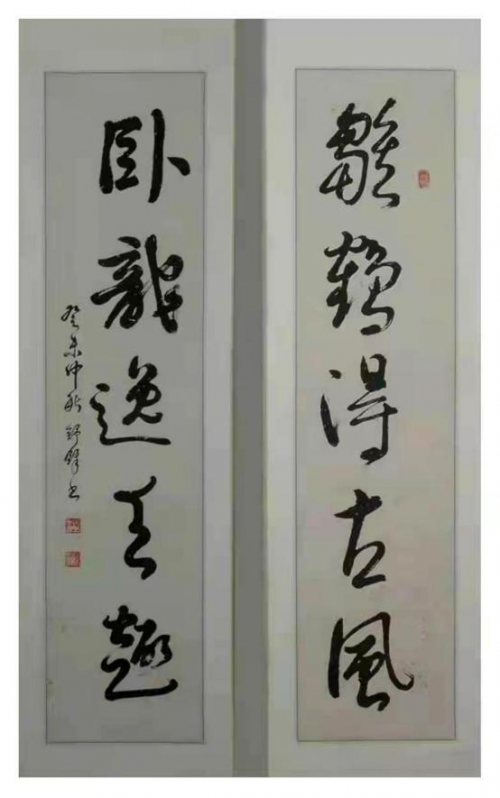 雛鶴得古風
卧龍逸天趣
癸未中秋舒書